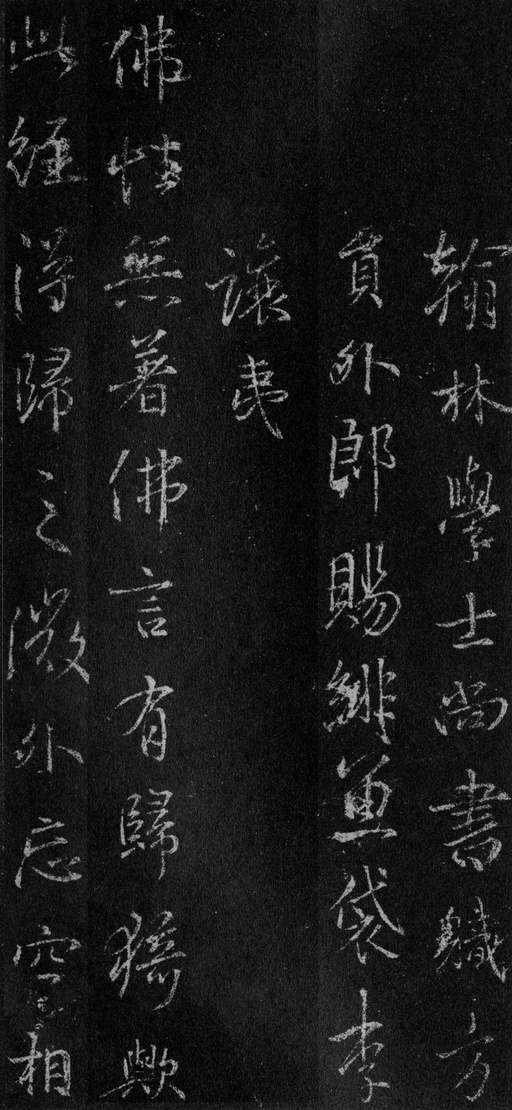 翰林學士尚書職方
貟外郎賜緋魚袋李
讓夷
佛性無著佛言有歸猗歟
此經得歸之㣲外忘空相